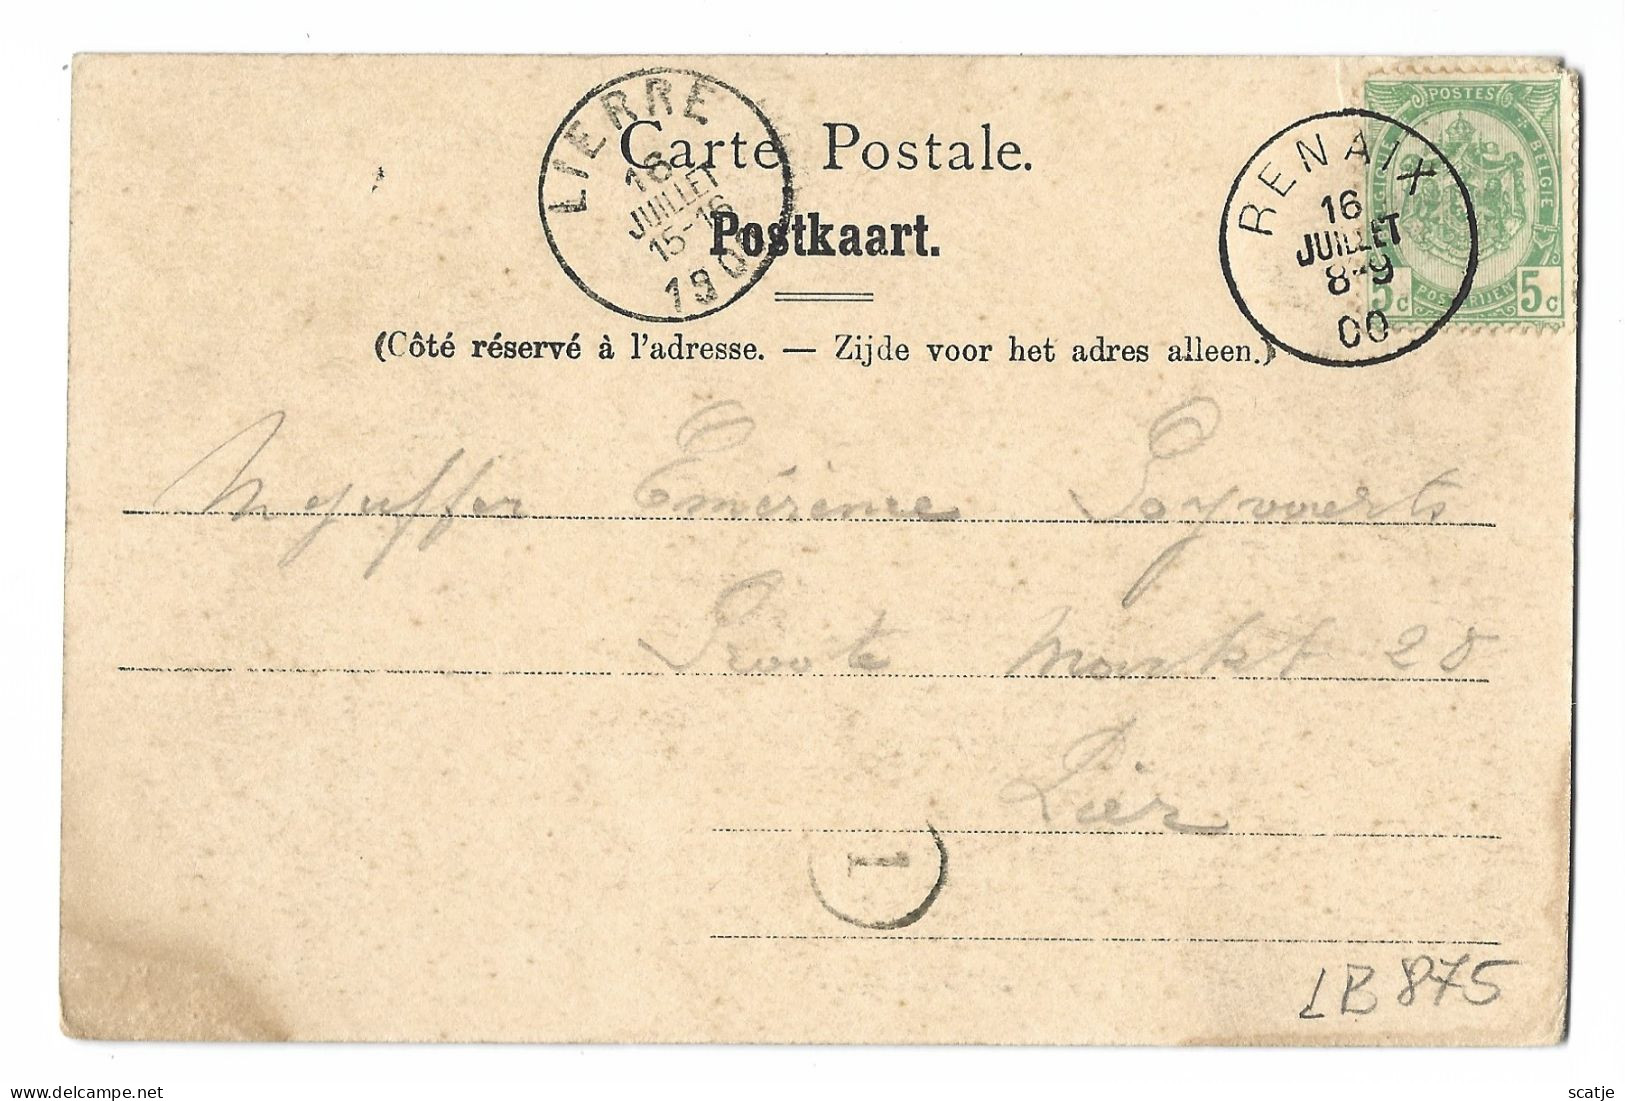 LIERRE
16
JUILLET
15-16
190
Carte Postale.
Postkaart.
(Côté réservé à l'adresse. — Zijde voor het adres alleen.)
POSTES
BELGIE
5c POSTERIJEN 5c
RENAIX
16
JUILLET
8-9
00
Mejuffer Emérence
Groote Markt 28
Lier
1
LB875
scatje